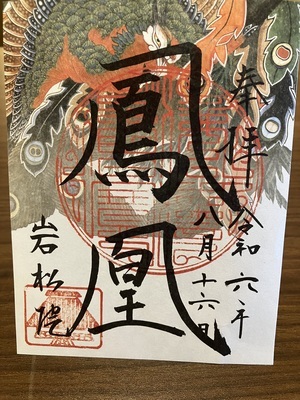 奉拝
令和六年
八月十六日
鳳凰
岩松院